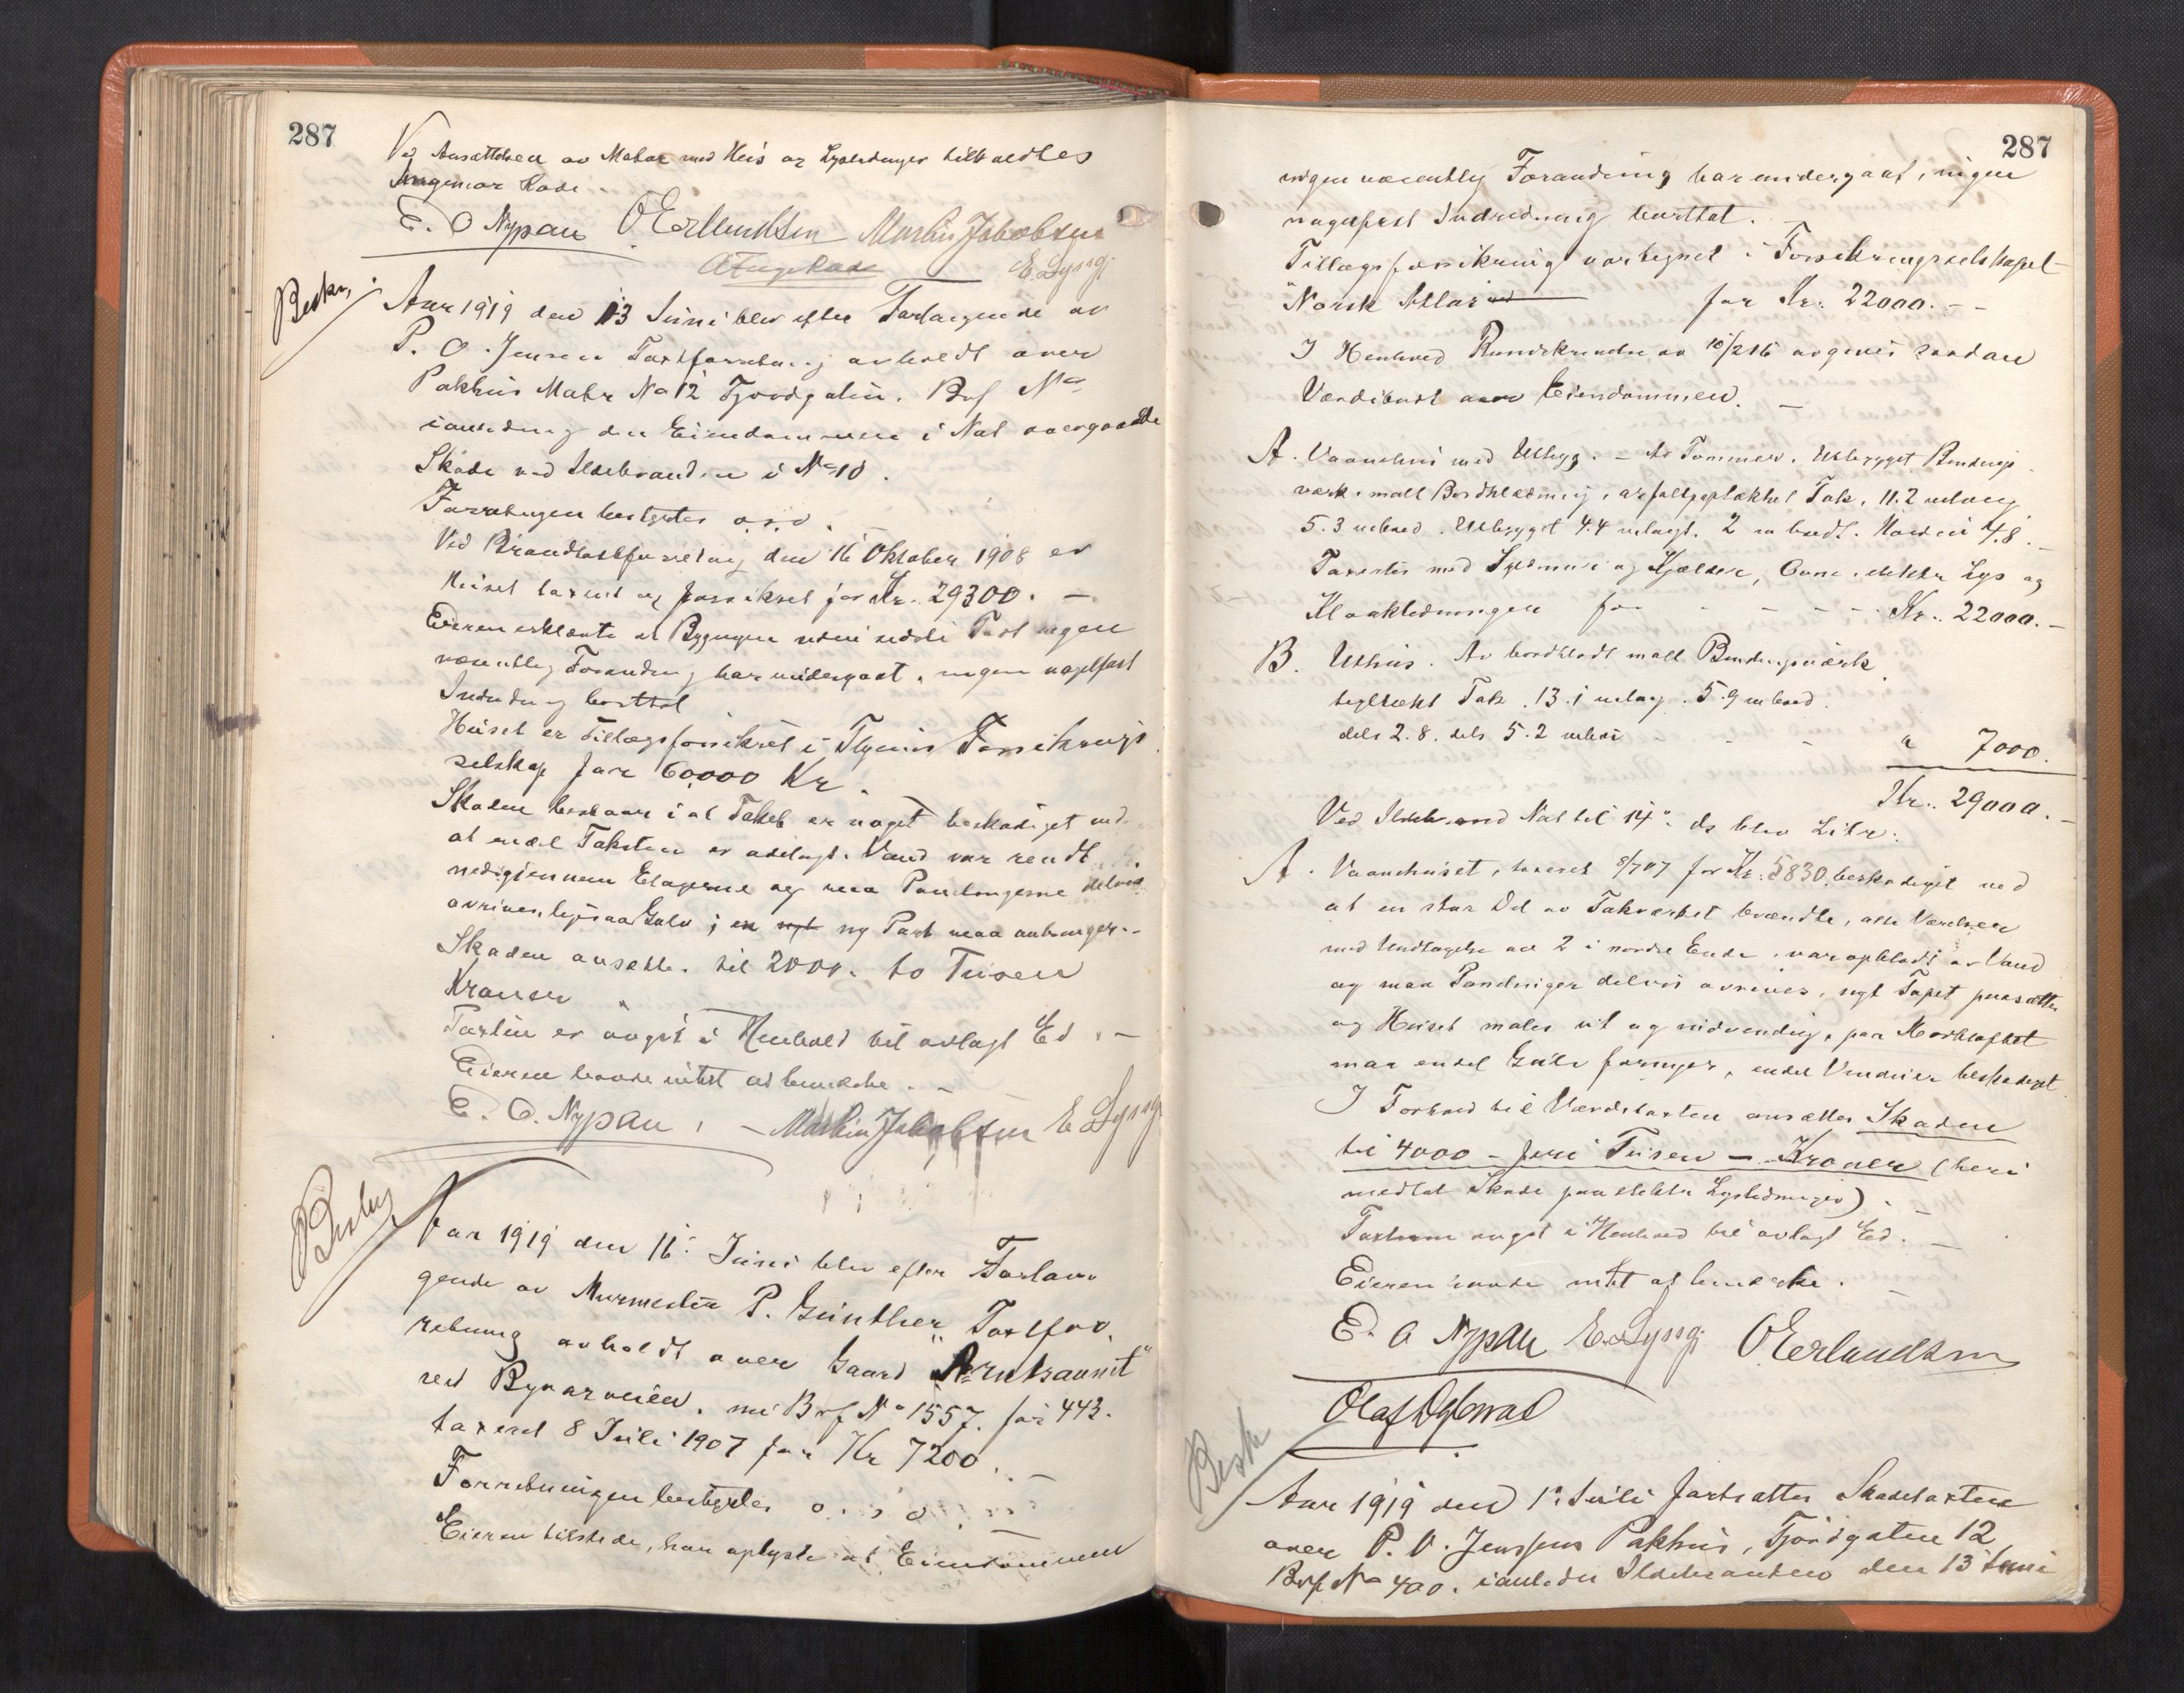 287
Ved Ansættelsen av Motor med Heis og Lysledninger tilkaldtes
Ingeniør Rode.
E. O Nypan O Erlandsen Martin Jakobsen
E. Lyng.
Beskr.
Aar 1919 den 13 Juni blev efter Forlangende av
P. O. Jensen Taxtforretning avholdt over
Pakhus Matr No 12 Fjordgaten. Brf No
ianledning den Eiendommen i Nat overgaaede
Skade ved Ildebranden i No 10.
Forretningen bestyrtes o.s.v.
Ved Brandtaxtforretning den 16 Oktober 1908 er
Huset taxeret og forsikret for Kr. 29300. –
Eieren erklærte at Bygningen siden sidste Taxt ingen
væsentlig Forandring har undergaat, ingen nagelfast
Indredning borttat
Huset er Tillægsforsikret i Forsikrings
selskap for 60,000 Kr.
Skaden bestaar i at Taket er noget beskadiget ved
at endel Taksten er ødelagt. Vand var rendt
ned gjennem Etagerne og maa Panelingerne delvis
avrives, ligesaa Gulv; ny Port maa anbringes. –
Skaden ansættes til 2000. to Tusen
Kroner
Taxten er avgit i Henhold til avlagt Ed. –
Eieren havde intet at bemerke. –
E. O. Nypan, – Martin Jakobsen E Lyng
Aar 1919 den 16. Juni blev efter Forlan
gende av Murmester P. Günther Taxtfor.
retning avholdt over Gaard "Arntsaunet"
ved Bynesveien. nu Brf No 1557. før 443.
taxeret 8 Juli 1907 for Kr 7200. –
Forretningen bestyrtes o. s. v.
Eieren tilstede, han oplyste at Eiendommen
287
ingen væsentlig Forandring har undergaat, ingen
nagelfast Indredning borttat.
Tillægsforsikring var tegnet i Forsikringsselskapet
"Norsk Atlas" for Kr. 22000. –
I Henhold Rundskrivelse av 10/2 16 avgives saadan
Værditaxt over Eiendommen. –
A. Vaanehus med Utbygg. – Av Tømmer. Utbygget Bindings
verk. malt Bordklædning, asfaltpaptækket Tak, 11.2 m lang
5.3 m bred. Utbygget 4.4 m langt. 2 m bredt. Høiden 4.8. –
Taxeres med Syldmur og Kjælder, Ovne, elektr Lys og
Kloakledningen for - - - - Kr. 22000. –
B. Uthus. Av bordklædt malt Bindingsverk
tegltækt Tak. 13.1 m lang. 5.9 m bred.
dels 2.8. dels 5.2 m høi - - - " 7000.
Kr. 29000. –
Ved Ildebrand Nat til 14. ds blev Litr:
A. Vaanehuset, taxeret 8/7 07 for Kr. 5830. beskadiget ved
at en stor Del av Takverket brændte, alle Værelser
med Undtagelse av 2 i nordre Ende, var opblødt av Vand
og maa Panelinger delvis avrives, nyt Tapet paasættes
og Huset males ut og indvendig, paa Mørkloftet
maa endel Gulv fornyes, endel Vinduer beskadiget.
I Forhold til Værditaxten ansættes Skaden
til 4000 – fire Tusen – Kroner (heri
medtat Skade paa elektr Lysledninger). –
Taxten avgit i Henhold til avlagt Ed. –
Eieren havde intet at bemerke. –
E. O Nypan E. Lyng O Erlandsen
Olaf
Beskr
Aar 1919 den 1. Juli fortsattes Skadetaxten
over P. O. Jenssens Pakhus, Fjordgaten 12
Brf No 400. ianledn Ildebranden den 13 Juni